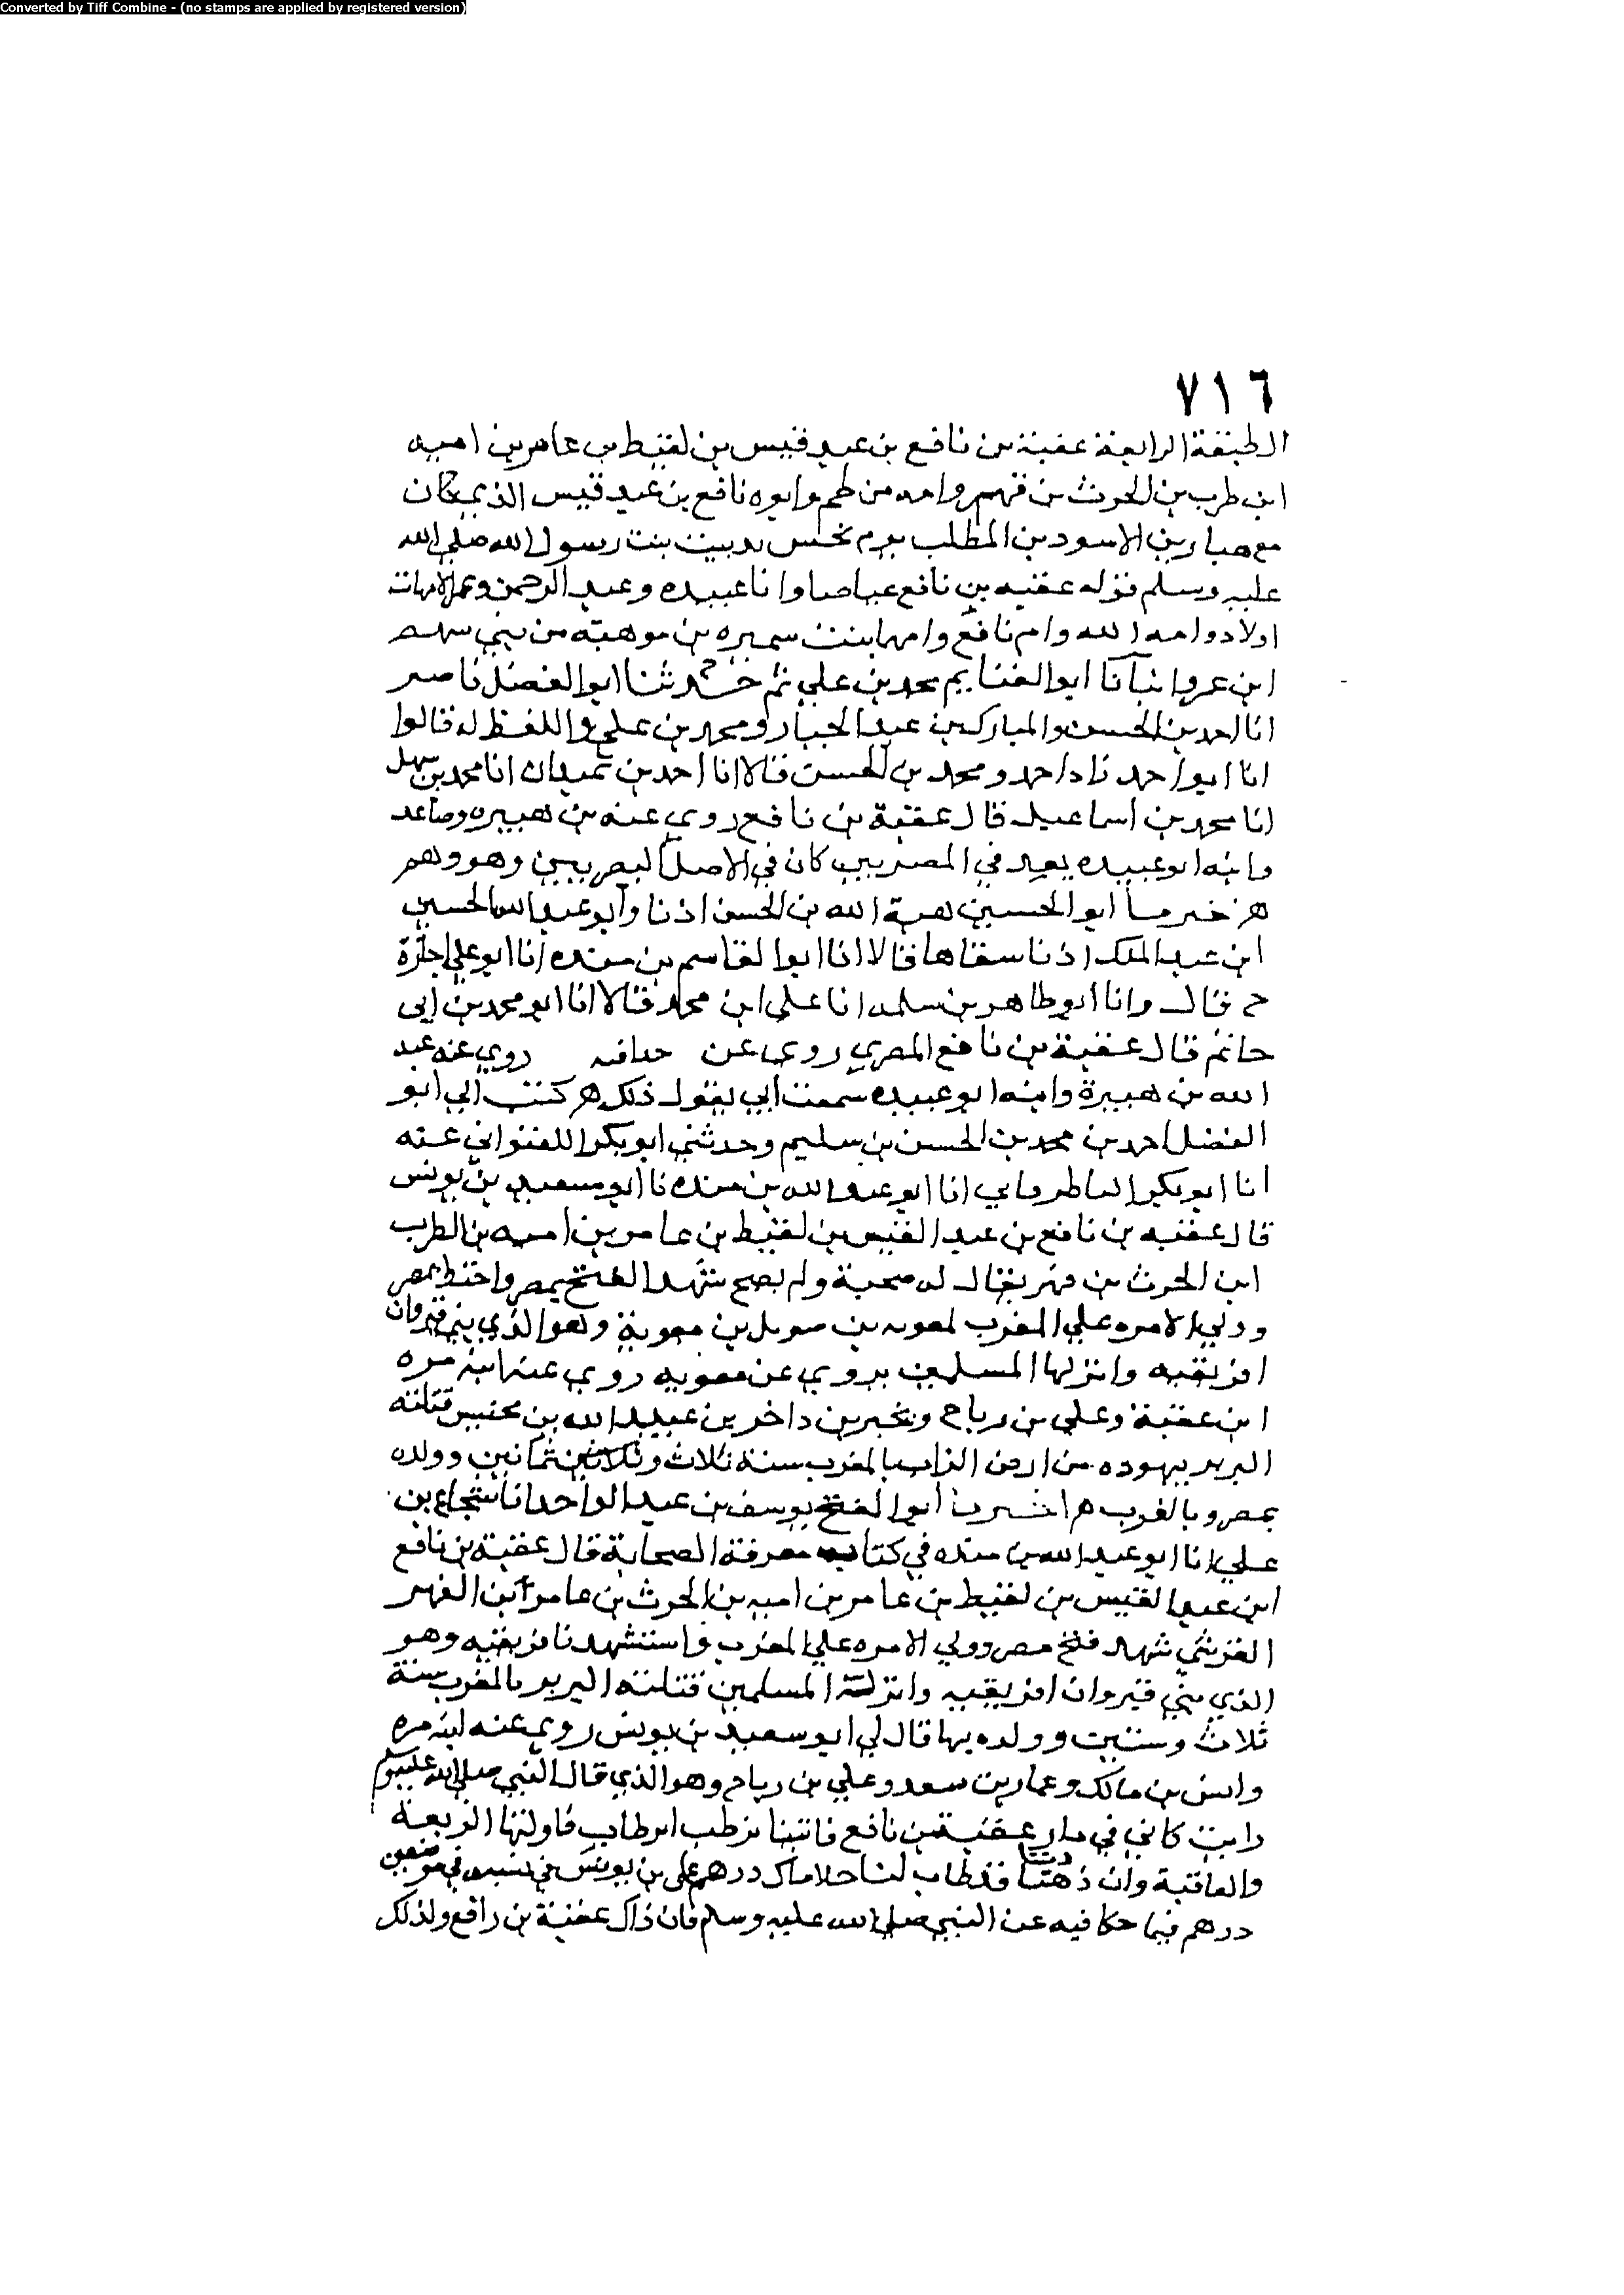 Converted by Tiff Combine - (no stamps are applied by registered version)
٧١٦
الطبقة الرابعة عقبة بن نافع بن عبد قيس بن لقيط بن عامر بن اميه
ابن طرب بن الحرث بن فهر وامه من لخم وابوه نافع بن عبد قيس الذي كان
مع هبار بن الاسود بن المطلب يوم نخس بنت رسول الله صلى الله
عليه وسلم فولد عقبه بن نافع عياضا وانا عبيده وعبد الرحمن
اولاد وامه الله وام نافع وامها بنت سميره بن موهبه من بني سهم
ابن عمرو انبانا ابوا الغنايم محمد بن علي ثم حدثنا ابوا الفضل ناصر
انا احمد بن الحسن والمبارك بن عبد الجبار ومحمد بن علي واللفظ له قالوا
انا ابوا احمد زاد احمد ومحمد بن الحسن قالا انا احمد بن عبدان انا محمد بن سهل
انا محمد بن اسماعيل قال عقبة بن نافع روي عنه بن هبيره وصاعد
وابنه ابو عبيده يعد في المصريين كان في الاصل البصريين وهو وهم
ابوا الحسين هبة الله بن الحسن اذنا وابو عبد الله الحسين
ابن عبد الملك اذنا شفاها قالا انا ابوا القاسم بن منده انا ابو علي اجازة
ح قال وانا ابو طاهر بن سلمه انا علي ابن محمد قالا انا ابو محمد بن ابي
حاتم قال عقبة بن نافع المصري روى عن روي عنه عبد
الله بن هبيرة وابنه ابو عبيده سمعت ابي يقول ذلك كتب الي ابو
الفضل احمد بن محمد بن الحسن بن سليم وحدثني ابو بكر اللفتواني عنه
انا ابو بكر الباطرقاني انا ابو عبد الله بن منده نا ابو سعيد بن يونس
قال عقبه بن نافع بن عبد القيس بن لقيط بن عامر بن اميه بن الطرب
ابن الحرث بن فهر يقال له صحبة ولم يصح شهد الفتح بمصر واختط بمصر
وولي الامره علي المغرب لمعويه بن معوية وهو الذي بني قيروان
افريقيه وانزلها المسلمين يروي عن معويه روي عنه ابنه مره
ابن عقبة وعلي بن رباح وبحير بن داخر بن عبيد الله بن قتلته
البربر بيهوده من ارض الزاب بالمغرب سنة ثلاث وثمانين وولده
بمصر وبالغرب اخبرنا ابوا الفتح يوسف بن عبد الواحد انا شجاع بن
علي انا ابو عبد الله بن منده في كتاب معرفة الصحابة قال عقبة بن نافع
ابن عبد القيس بن لقيط بن عامر بن اميه بن الحرث بن عامر ابن الفهر
القرشي شهد فتح مصر وولي الامره علي المغرب واستشهد بافريقيه وهو
الذي بني قيروان افريقيه وانزله المسلمين قتلته البربر بالمغرب سنة
ثلاث وستين وولده بها قال لي ابو سعيد بن يونس روي عنه ابنه مره
وانس بن مالك وعمار بن سعد وعلي بن رباح وهو الذي قال النبي صلى الله عليه وسلم
رايت كاني في دار عقبة بن نافع فاتينا برطب ابرطاب فاولتها الرفعة
والعاقبة وان ديننا قد طاب لنا
درهم فيما حكا فيه عن النبي صلى الله عليه وسلم فان ذاك عقبة بن رافع ولذلك